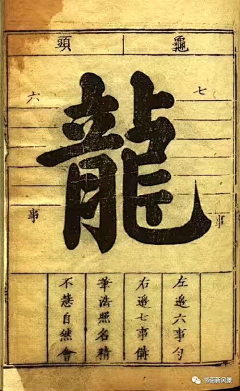 頭
龍
七事
六事
左邊六事勻
右邊七事
筆法照名精
不自然會